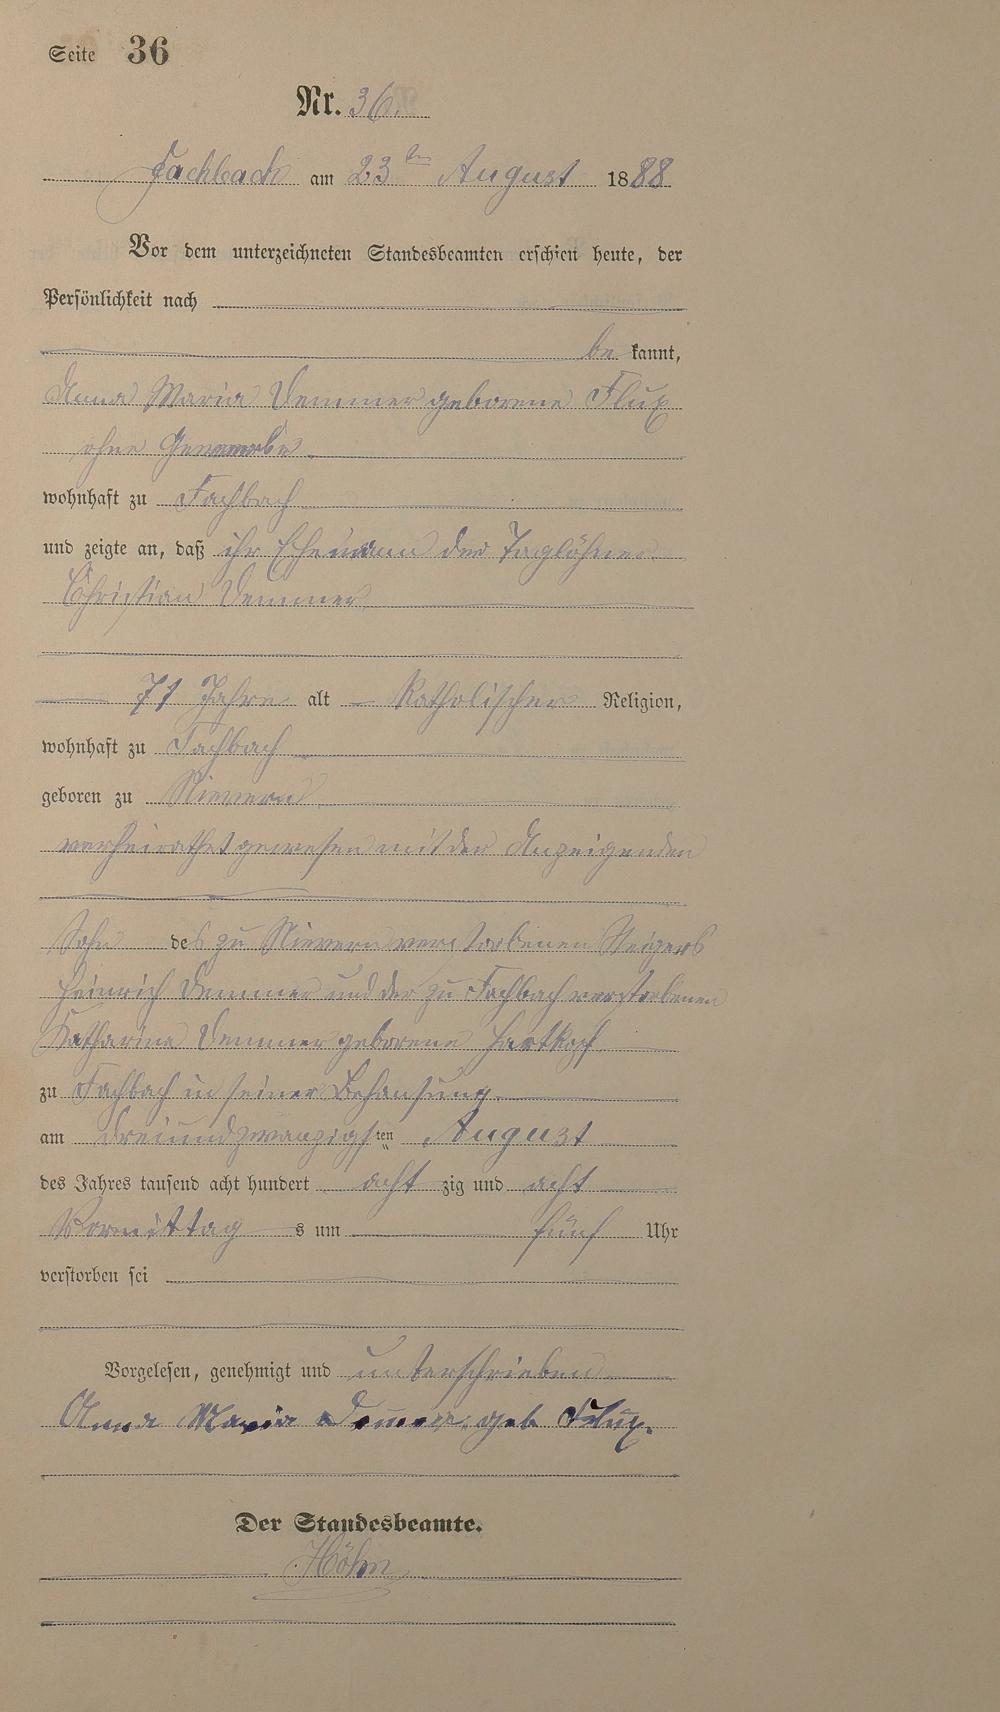 Seite 36
Nr. 36.
Fachbach am 23ten August 1888
Vor dem unterzeichneten Standesbeamten erschien heute, der
Persönlichkeit nach
be kannt,
Anna Maria Demmer geborene Flux
ohne Gewerbe
wohnhaft zu Fachbach
und zeigte an, daß ihr Ehemann der Taglöhner
Christian Demmer
71 Jahre alt katholischer Religion,
wohnhaft zu Fachbach
geboren zu Nievern
verheirathet gewesen mit der Anzeigenden
Sohn des zu Nievern verstorbenen Steigers
Heinrich Demmer und der zu Fachbach verstorbenen
Katharina Demmer geborene Hartkopf
zu Fachbach in seiner Behausung
am dreiundzwanzigsten August
des Jahres tausend acht hundert acht zig und acht
Vormittag s um fünf Uhr
verstorben sei
Vorgelesen, genehmigt und unterschrieben
Anna Maria Demmer geb Flux.
Der Standesbeamte.
Höhn